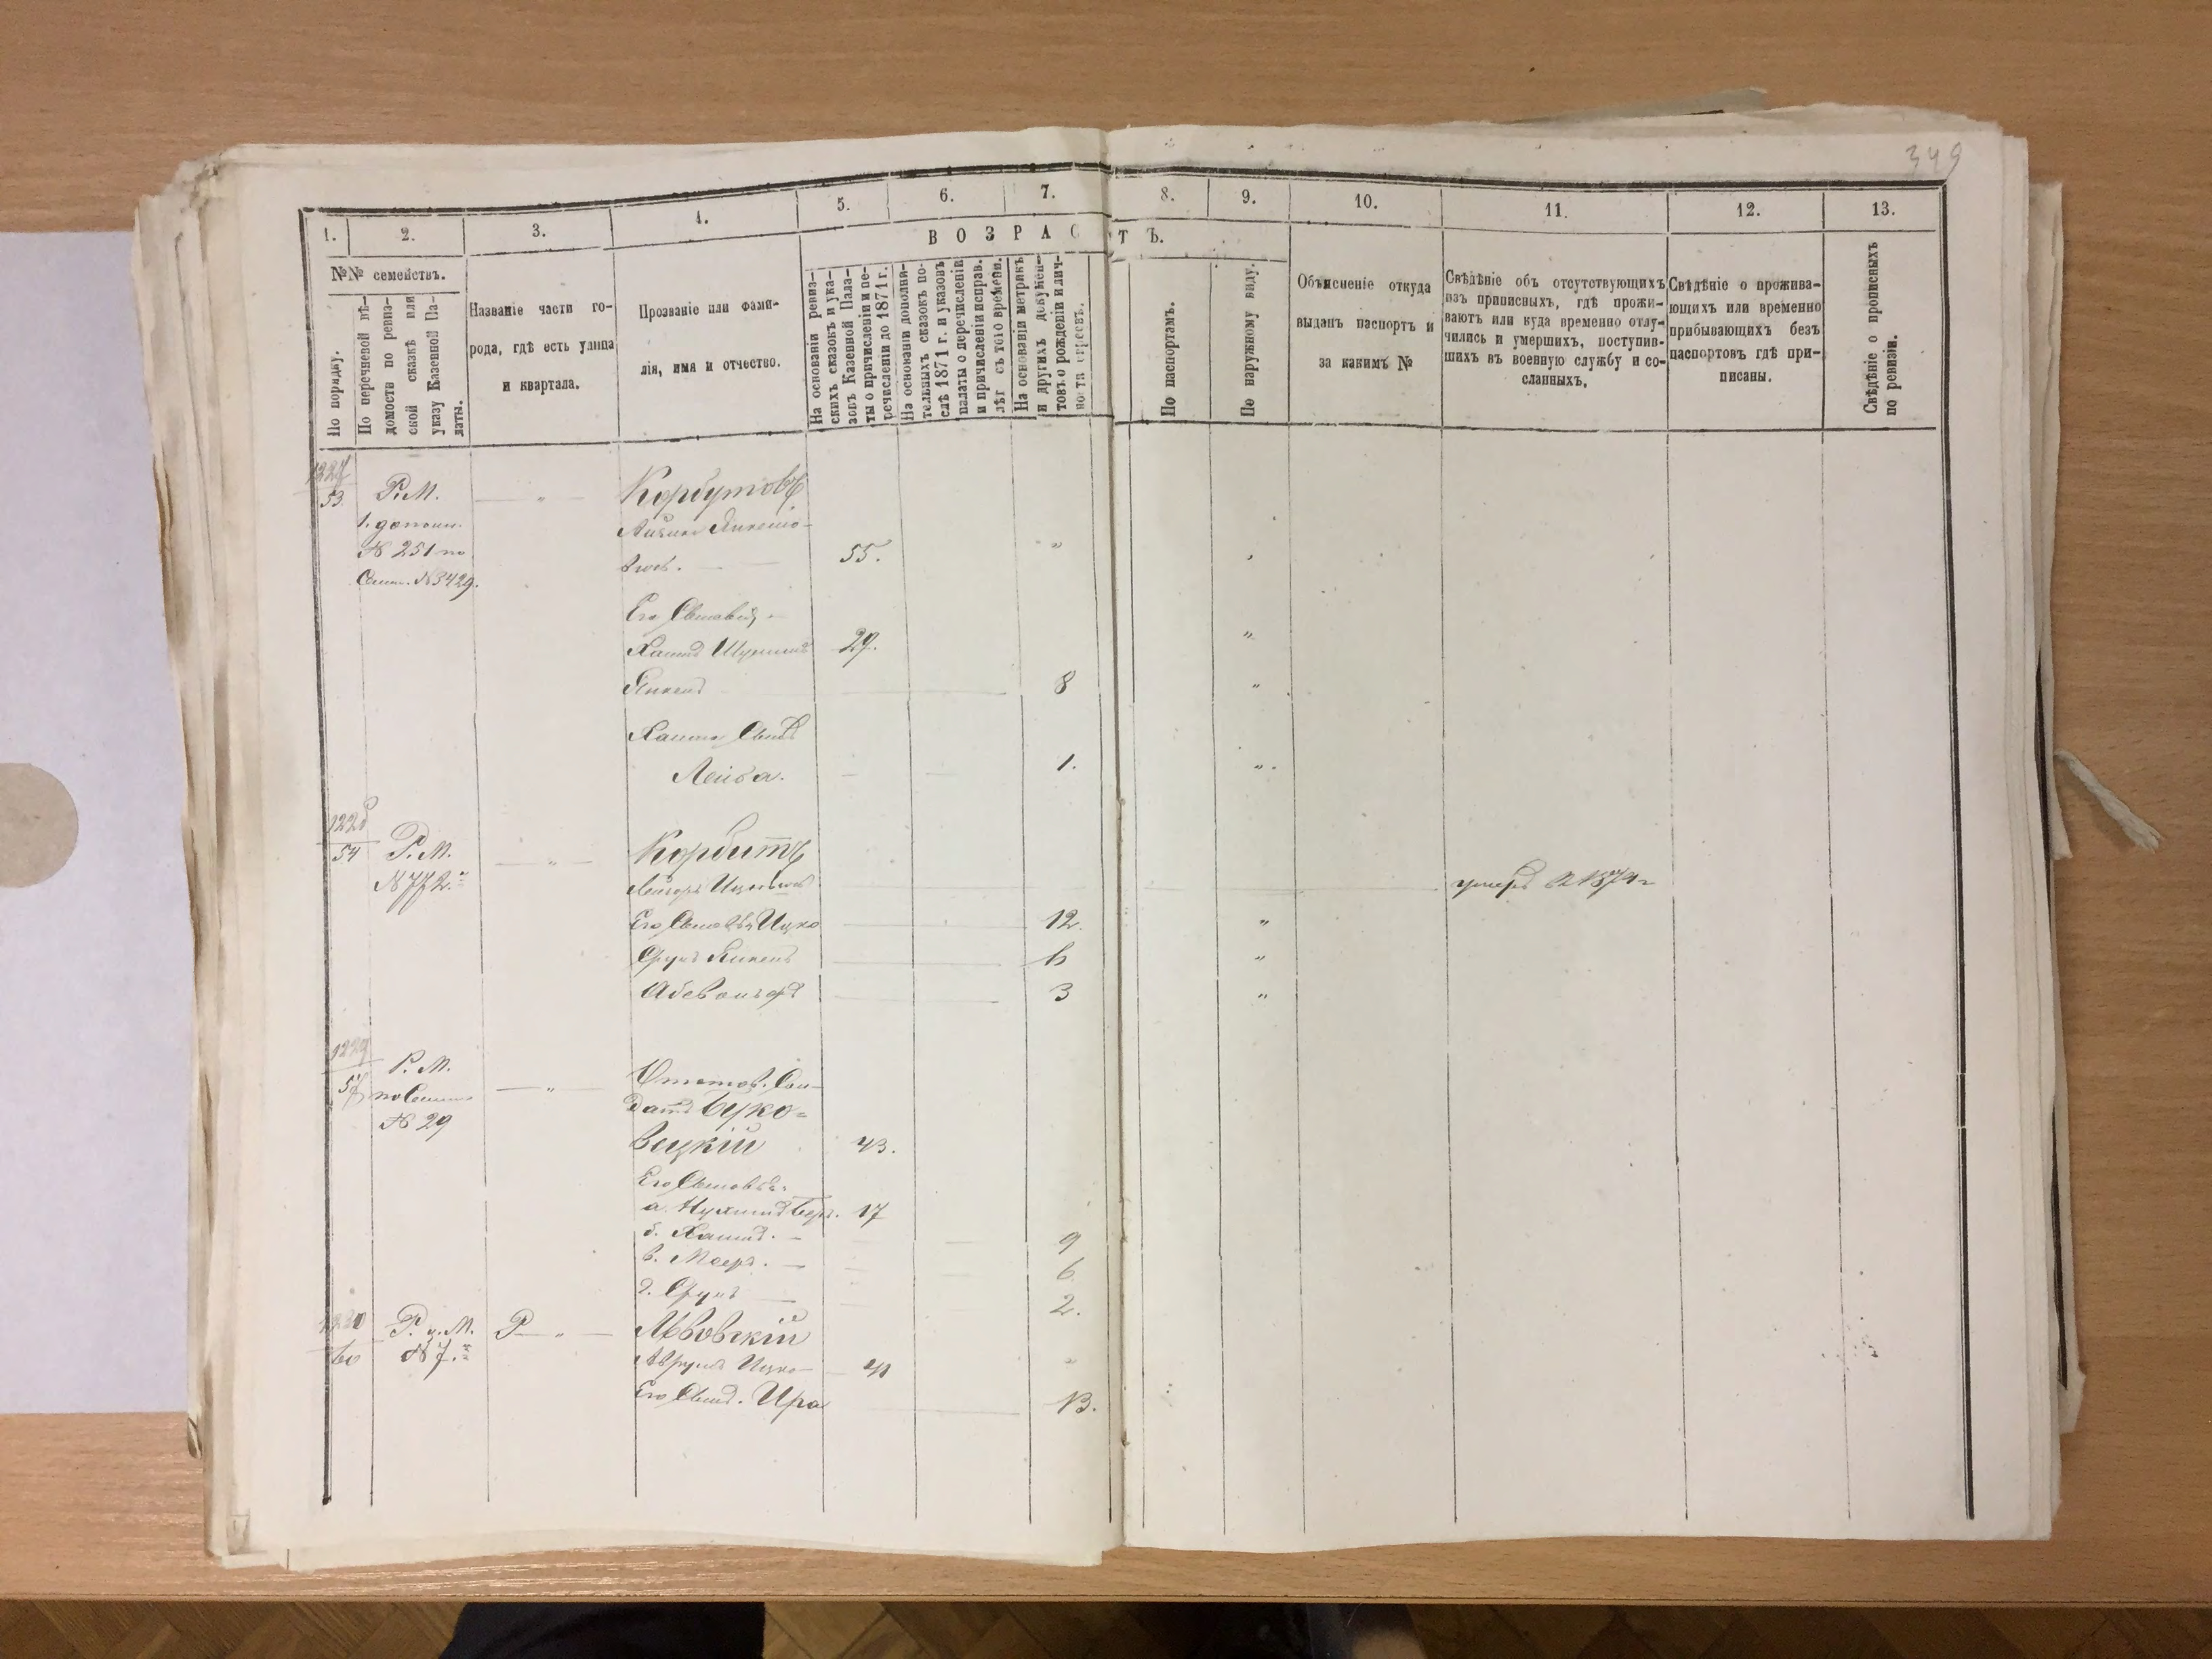 349
1.
2.
3.
4.
5.
6.
7.
8.
9.
10.
11.
12.
13.
№№ семействъ.
ВОЗРАСТЪ.
По порядку.
По перечневой вѣ-
домости по ревиз-
ской сказкѣ или
указу Казенной Па-
латы.
Названіе части го-
рода, гдѣ есть улица
и квартала.
Прозваніе или фами-
лія, имя и отчество.
На основаніи ревиз-
скихъ сказокъ и ука-
зовъ Казенной Пала-
ты о причисленіи и пе-
речисленіи до 1871 г.
На основаніи дополни-
тельныхъ сказокъ по-
слѣ 1871 г. и указовъ
палаты о перечисленіи
и причисленіи исправ.
лѣт съ того времени.
На основаніи метрикъ
и другихъ докумен-
товъ о рожденіи и лич-
По паспортамъ.
По наружному виду.
Объясненіе откуда
выданъ паспортъ и
за какимъ №
Свѣдѣніе объ отсутствующихъ
изъ приписныхъ, гдѣ прожи-
ваютъ или куда временно отлу-
чились и умершихъ, поступив-
шихъ въ военную службу и со-
сланныхъ.
Свѣдѣніе о прожива-
ющихъ или временно
прибывающихъ безъ
паспортовъ гдѣ при-
писаны.
Свѣдѣніе о прописныхъ
по ревизіи.
53 Р.М. — " — Корбутовъ
1. дополн.
№ 251 по 55. "
№ 3429.
Его Сыновья
Хаимъ 29. "
Янкель 8 "
Хаима Сынъ
Лейба. 1. "
1228
54 Р.М. — " — Корбитъ
№ 772. Ицковъ умеръ въ 1874 г
Его Сыновья Ицко 12. "
Срулъ Янкель 6 "
3 "
1229
Р.М. — " — Отстав. Сол-
датъ Буко-
№ 29
вецкій 43.
Его Сыновья:
а. 17
б. Хаимъ. — 9
в. Меер. — 6
г. Срулъ — 2.
60 Р. М. Р — " — Львовскій
№ 7. Ицко —
Его Сынъ. Ира 13.